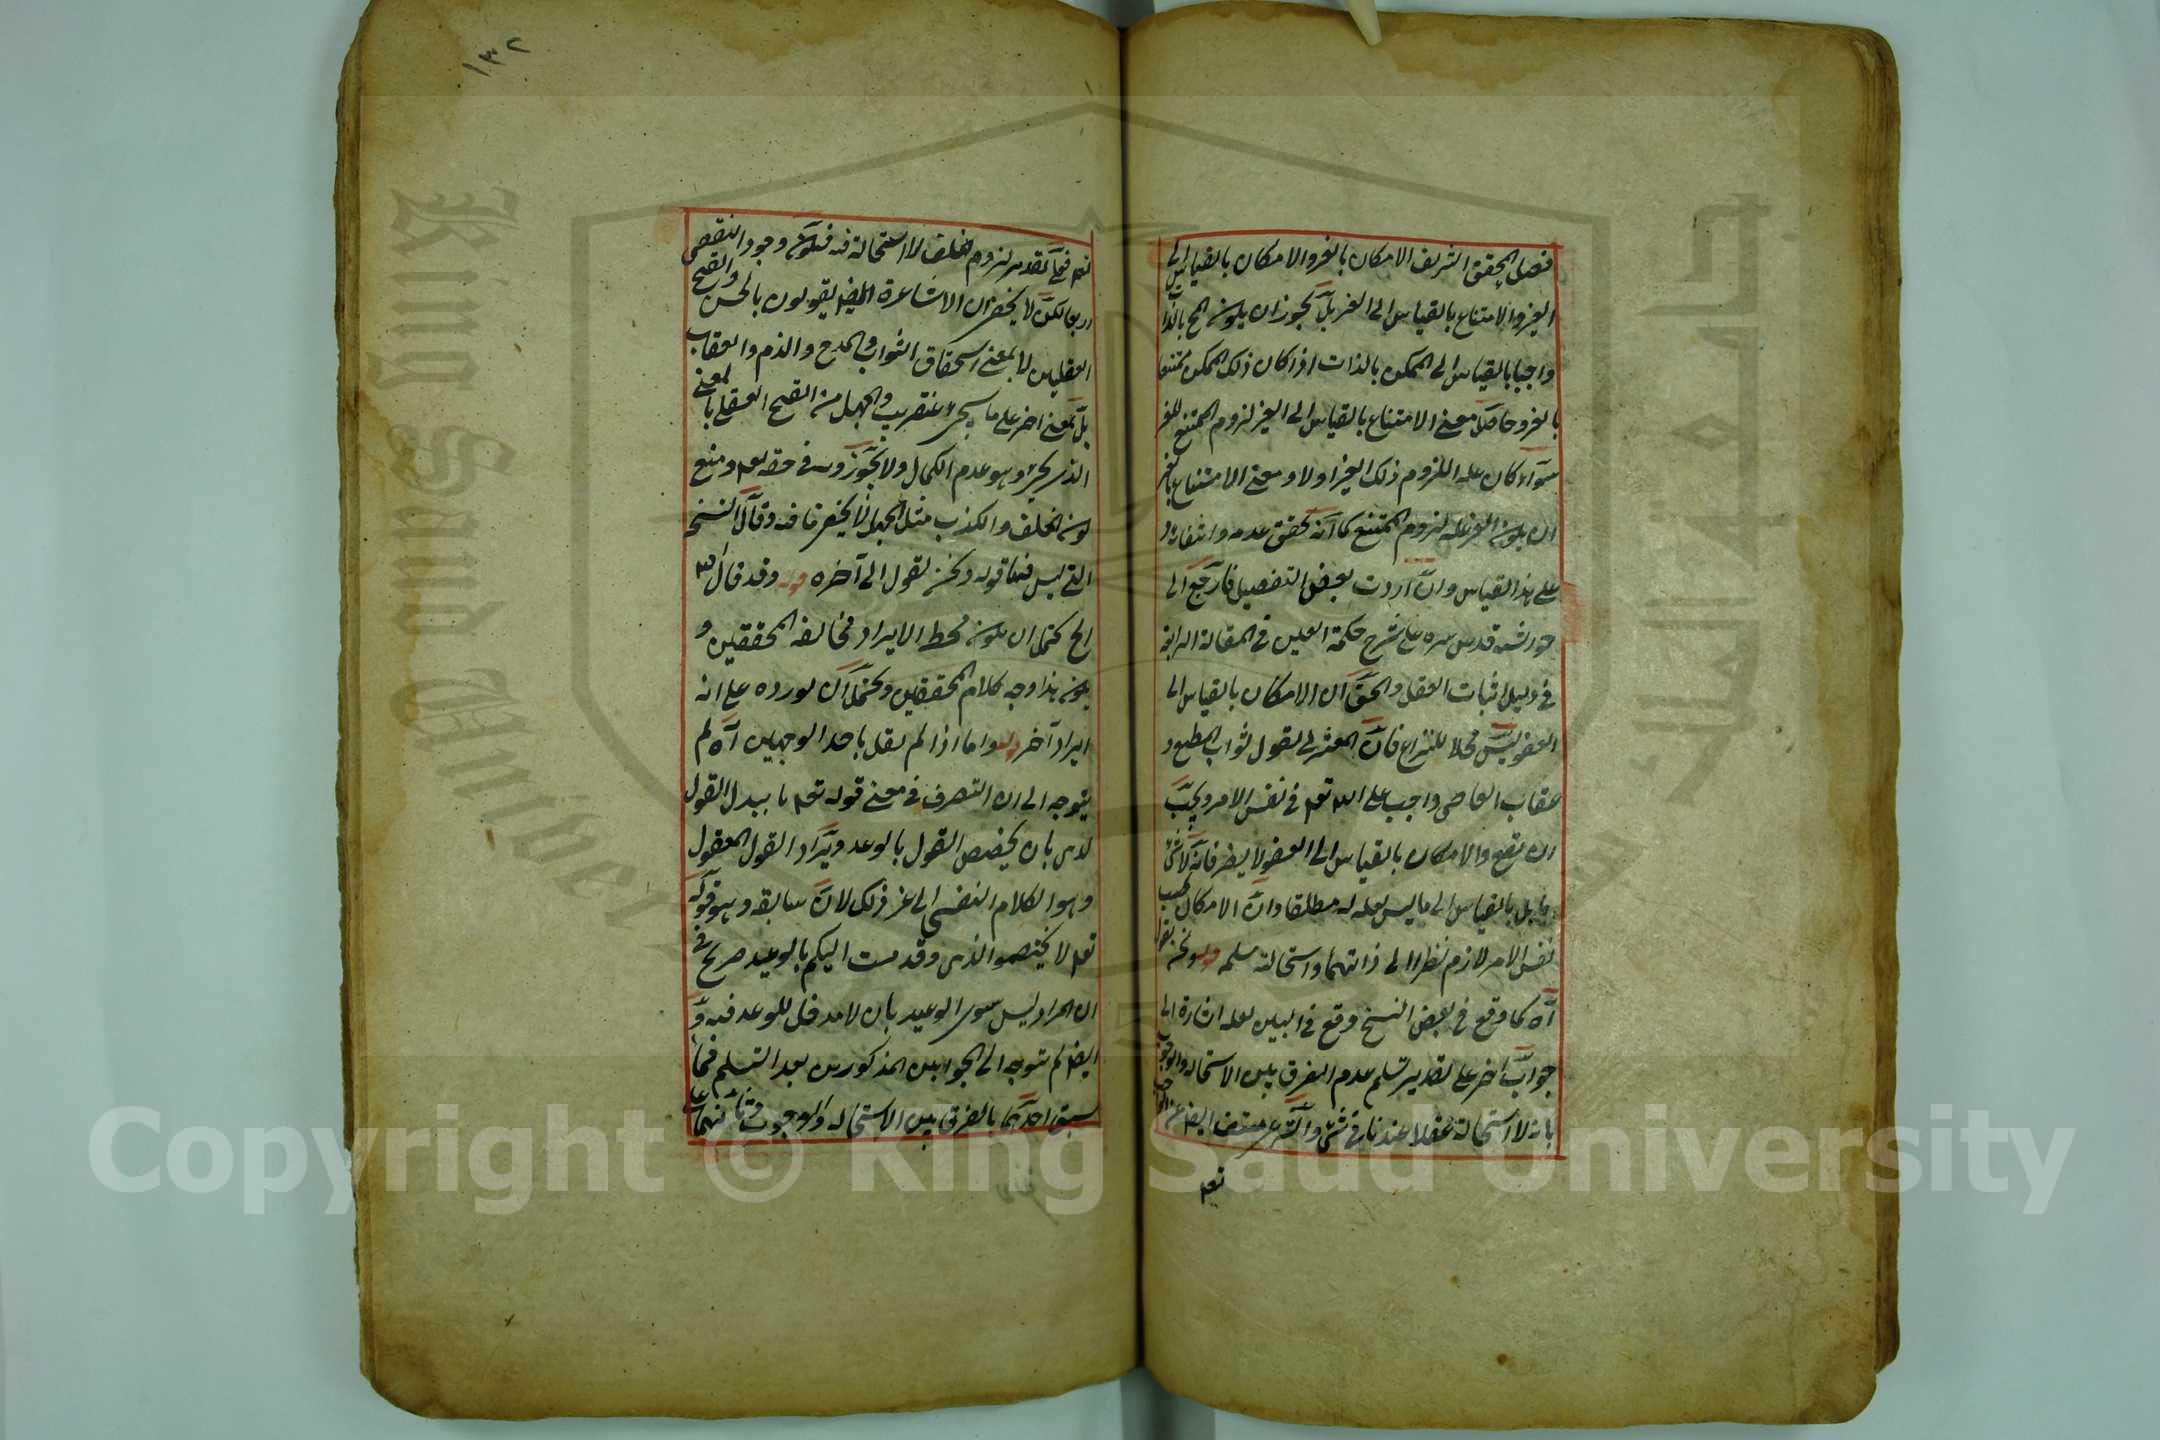 فصل المحقق الشريف الامكان بالغير والامكان بالقياس الى
الغير والامتناع بالقياس الى الغير بل يجوز ان يكون المم بالذات
واجبا بالقياس الى الممكن بالذات اذا كان ذلك الممكن ممتنعا
بالغير وحاصل معنى الامتناع بالقياس الى الغير لزوم الممتنع للغير
سواء كان علة اللزوم ذلك الغير اولا ومعنى الامتناع بالغير
ان يكون الغير علة لزوم الممتنع كما انه تحقق عدمه وانتفاؤه و
على هذا القياس وان اردت بعض التفصيل فارجع الى
حواشيه قدس سره على شرح حكمة العين في المقالة الرابعة
في دليل اثبات العقل والحق ان الامكان بالقياس الى
العفو ليس محلا للنزاع فان المعتزلي يقول ثواب المطيع و
عقاب العاصي واجب على الله تعم في نفس الامر ويجب
ان يقع والامكان بالقياس الى العفو لا يضر فانه لا شئ
بل بالقياس الى ما ليس بعلة له مطلقا وان الامكان بحسب
نفس الامر لازم نظرا الى ذاتهما واستحالته مسلمة قوله ونحن نقول
آه كما وقع في بعض النسخ وقع في البين لعله اشارة الى
جواب آخر على تقدير تسليم عدم الفرق بين الاستحالة والوجوب
بانه لا استحالة عقلا عندنا في شئ
تعم
١٣٢
تعم فعلى تقدير لزوم الخلف لا استحالة فيه وجود النقص
لكن لا يخفى ان الاشاعرة ايضا يقولون بالحسن والقبح
العقليين لا بمعنى استحقاق الثواب والمدح والذم والعقاب
بل بمعنى اخر على ما سيجئ عنقريب والجهل من القبح العقلي بالمعنى
الذي يجئ وهو عدم الكمال ولا يجوزونه في حقه تعم ومنع
كون الخلف والكذب مثل الجهل لا يخفى ما فيه وقال النسخ
التي ليس فيها قوله ونحن نقول الى آخره قوله وقد قال الله
الخ يحتمل ان يكون محط الايراد مخالفة المحققين و
يكون هذا وجه كلام المحققين ويحتمل ان يورده على انه
ايراد آخر قوله واما اذا لم نقل باحد الوجهين آه لم
يتوجه الى ان التصرف في معنى قوله تعم ما يبدل القول
لدي بان يخصص القول بالوعد ويراد القول المعقول
وهو الكلام النفسي الى غير ذلك لان سابقه وهو قوله
تعم لا تختصموا لدي وقد قدمت اليكم بالوعيد صريح في
ان المراد ليس سوى الوعيد بان لا مدخل للوعد فيه و
ايضا لم يتوجه الى الجوابين المذكورين بعد التسليم فيما
سبق احدهما بالفرق بين الاستحالة والوجوب وثانيهما
Copyright © King Saud University
King Saud University